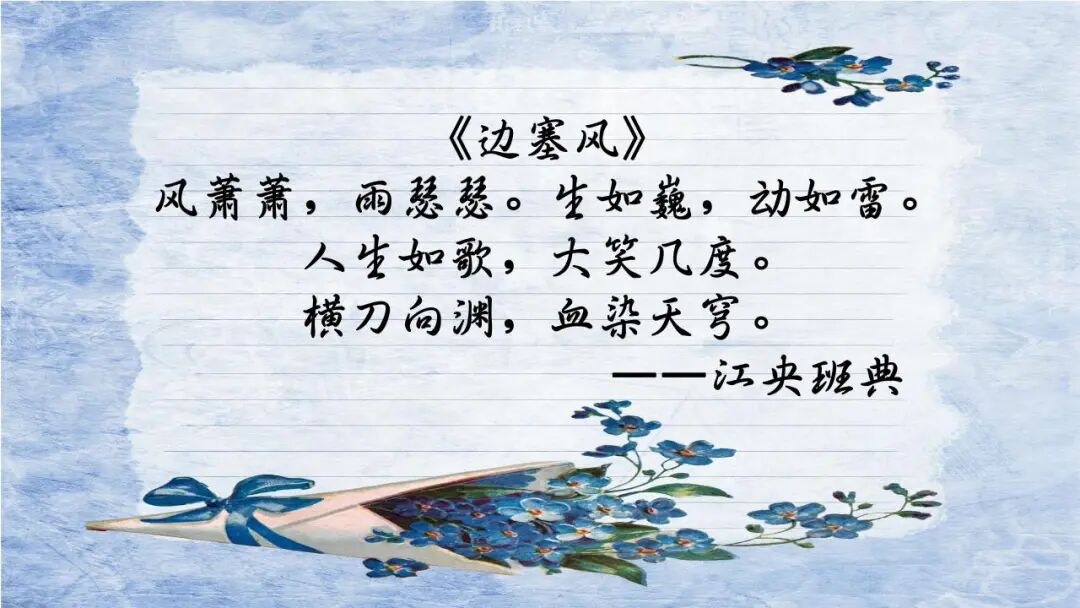 《边塞风》
风萧萧，雨瑟瑟。生如巍，动如雷。
人生如歌，大笑几度。
横刀向渊，血染天穹。
——江央班典